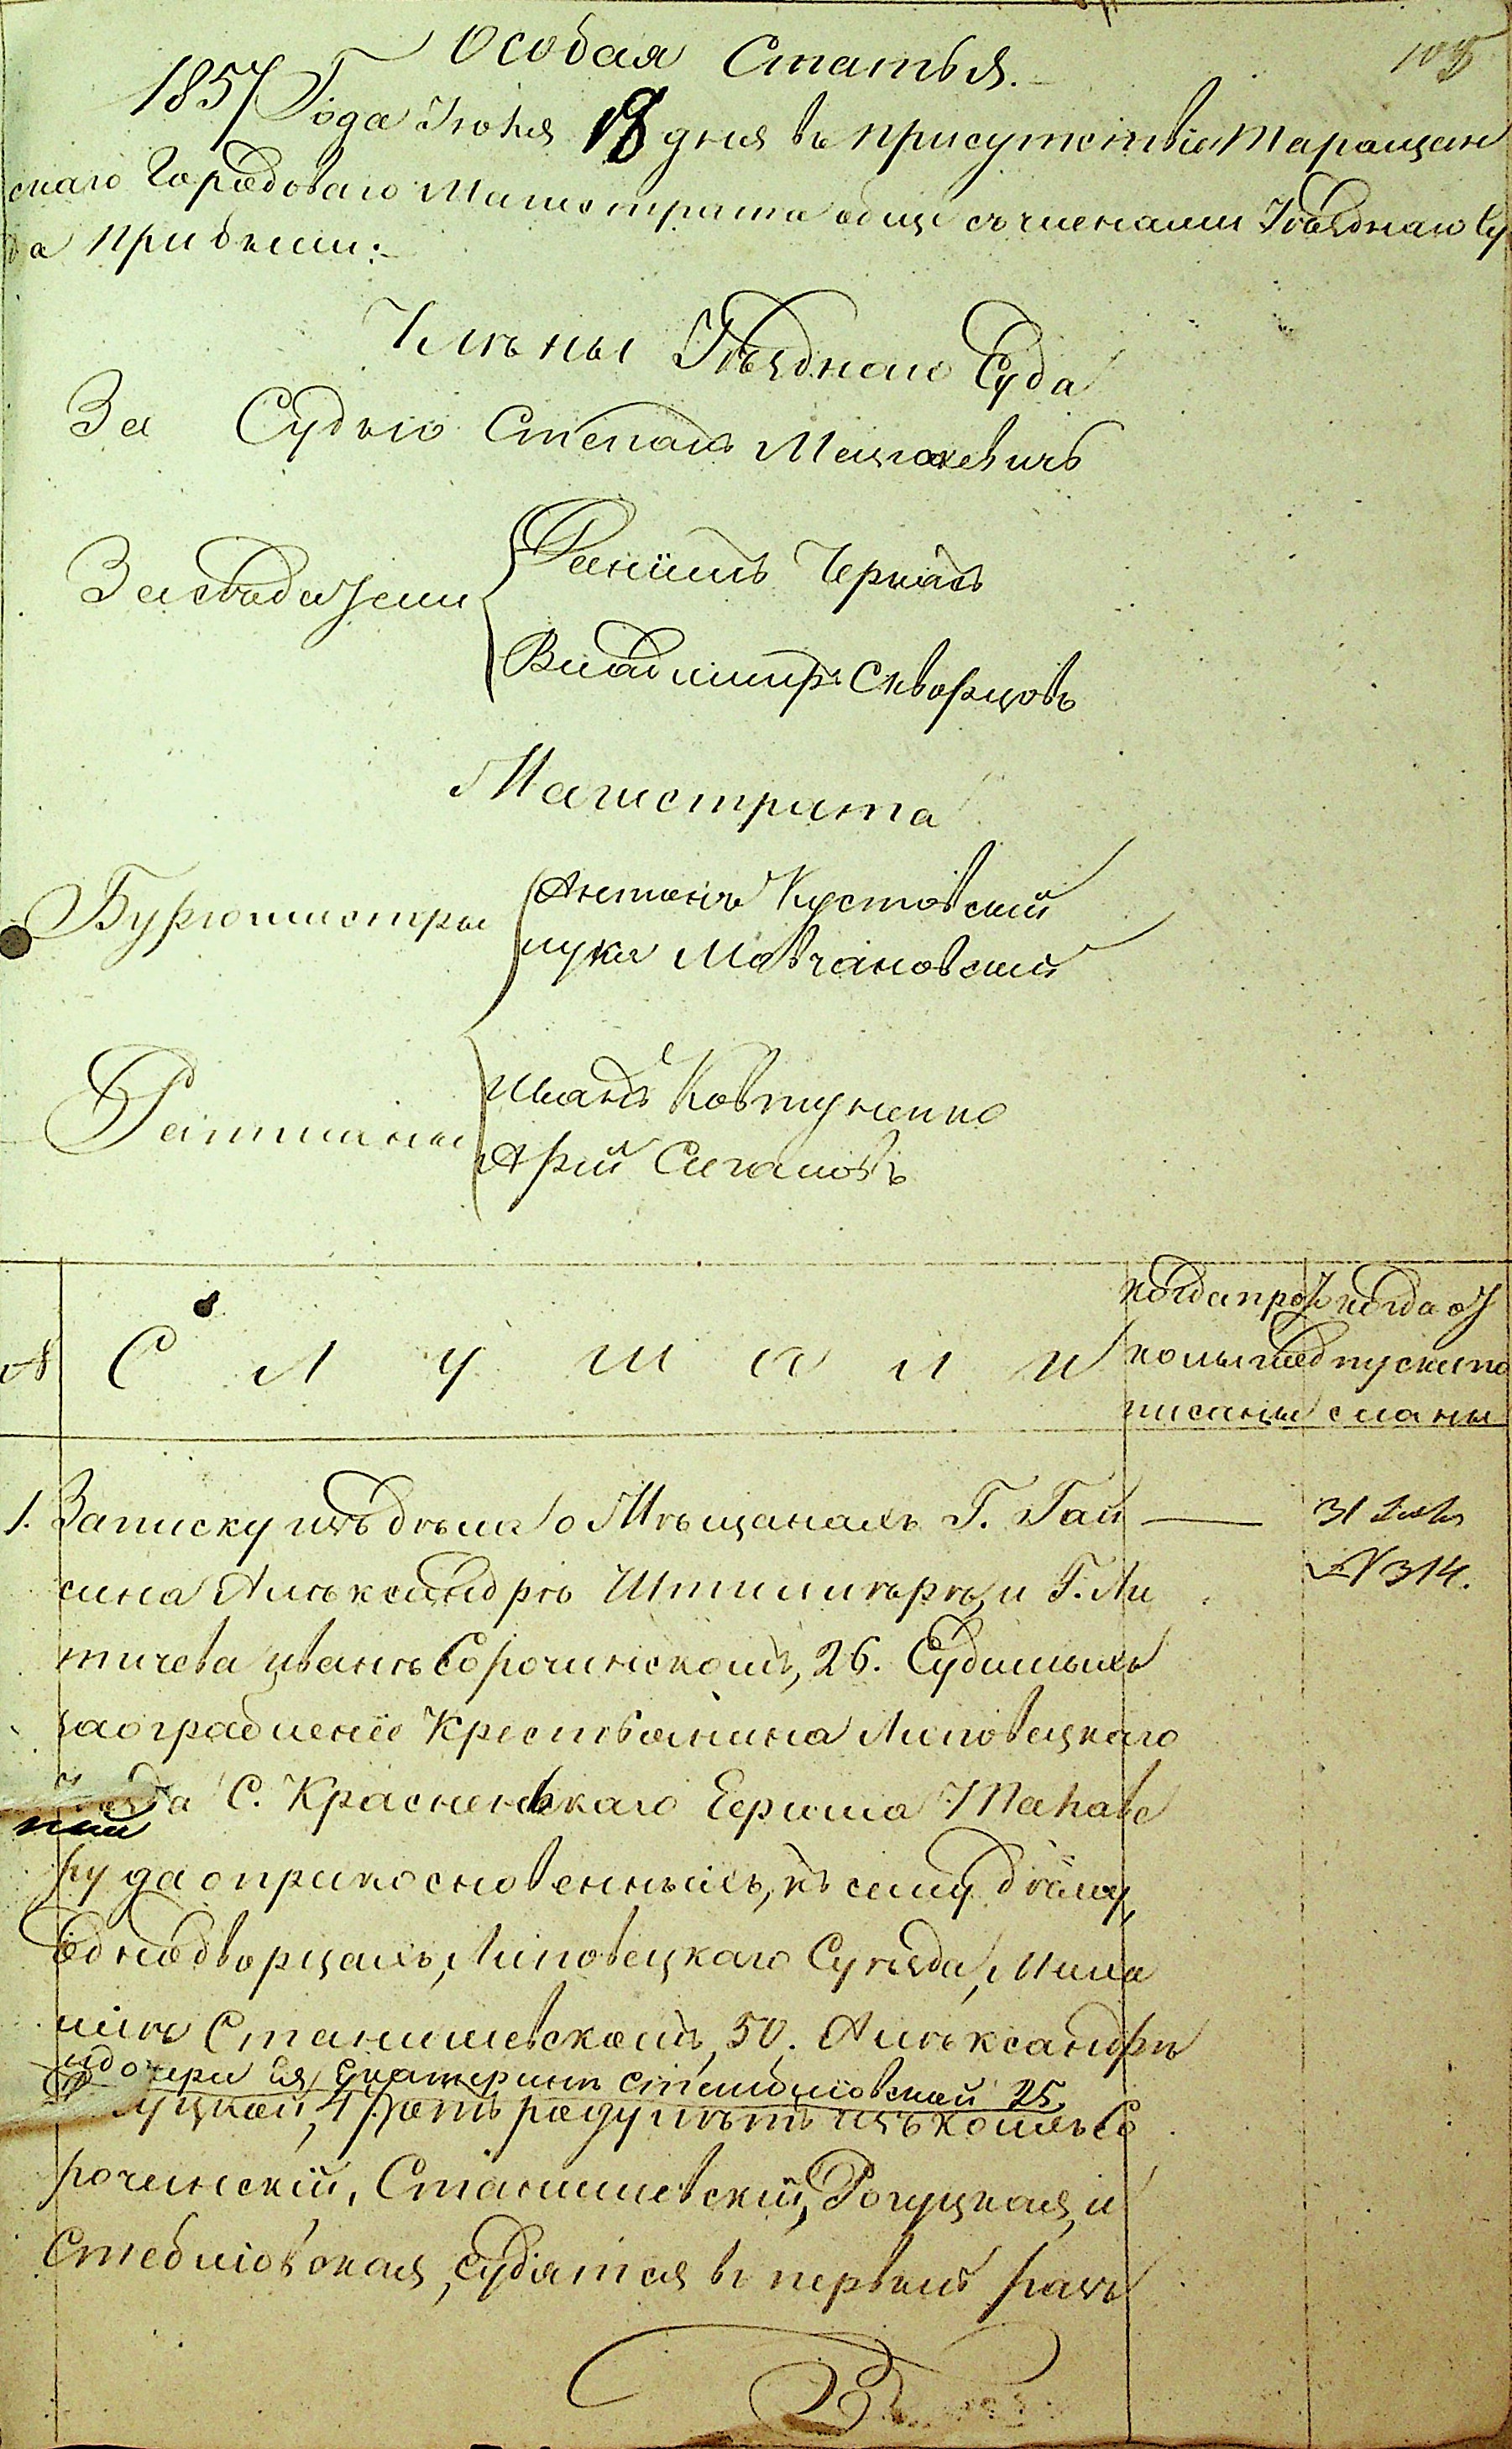 Особая Статья.
105
1857 Года Июля 18 дня въ присутствіи Таращан
скаго Городоваго Магистрата обще съ членами Уѣзднаго Су
да прибыли:
Члѣны Уѣзднаго Суда
За Судью Степанъ Мацкевичъ
Засѣдатели
Даніилъ Черкасъ
Владиміръ Скворцовъ
Магистрата
Бургомистры
Антонъ Кустовскій
Лука Мовчановскій
Ратманы
Иванъ Ковтуненко
Арій
№ Слушали
когда прото
колы под
писаны
когда от
пуски по
сланы
1. Записку изъ дѣла о Мѣщанахъ Г. Гай
сина Алѣксандрѣ и Г. Ли
тичева Иванѣ Сорочинскомъ, 26. Судимыхъ
за ограбленіе Крестьянина Липовецкаго
Уѣзда С. Красненькаго
ру да о прикосновенныхъ, къ сему дѣлу,
однодворцахъ, Липовецкаго Суѣзда, Миха
илѣ Станишевскомъ, 50. Алѣксандрѣ
и дочери ея Екатеринѣ Стеблиовской 25
Рогуцкой, 4 лѣтъ изъ коихъ Со
рочинскій, Станишевскій, Рогуцкая и
Стебліовская, судятся въ первый разъ
31 Июля
№ 314.